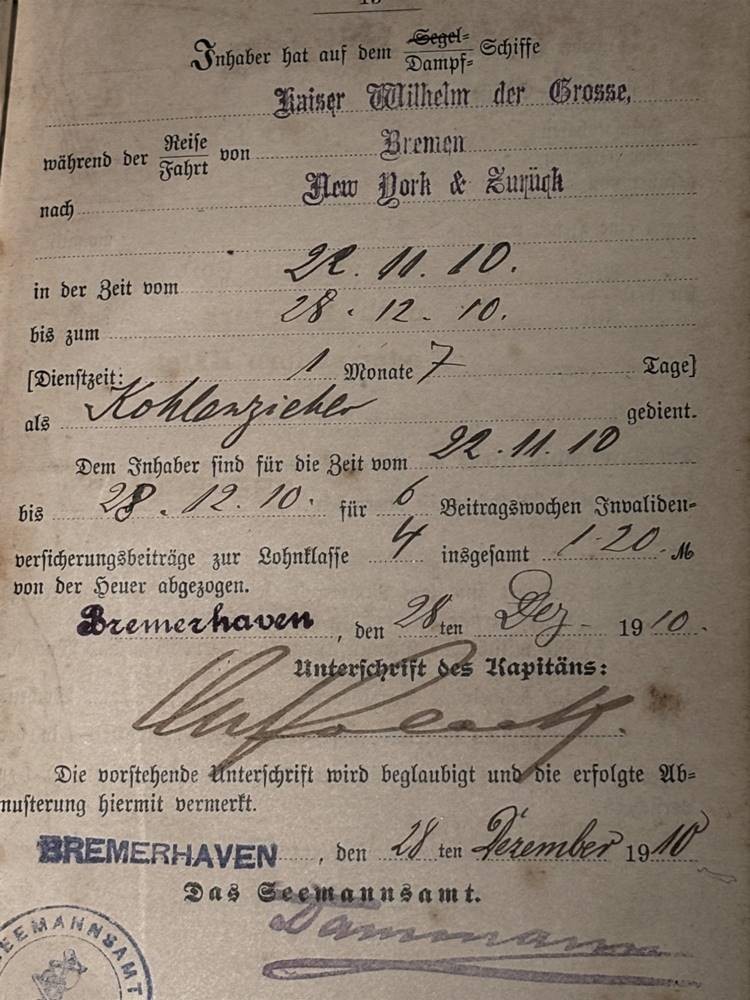 Inhaber hat auf dem Segel- Dampf- Schiffe
Kaiser Wilhelm der Grosse,
während der Reise Fahrt von Bremen
nach New York & Zurück
in der Zeit vom 22. 11. 10.
bis zum 28. 12. 10.
[Dienstzeit: 1 Monate 7 Tage]
als Kohlenzieher gedient.
Dem Inhaber sind für die Zeit vom 22.11.10
bis 28. 12. 10. für 6 Beitragswochen Invaliden-
versicherungsbeiträge zur Lohnklasse 4 insgesamt 1.20. M
von der Heuer abgezogen.
Bremerhaven, den 28ten Dez. 1910.
Unterschrift des Kapitäns:
Polack.
Die vorstehende Unterschrift wird beglaubigt und die erfolgte Ab-
musterung hiermit vermerkt.
BREMERHAVEN, den 28ten Dezember 1910
Das Seemannsamt.
Dammann
SEEMANNSAMT